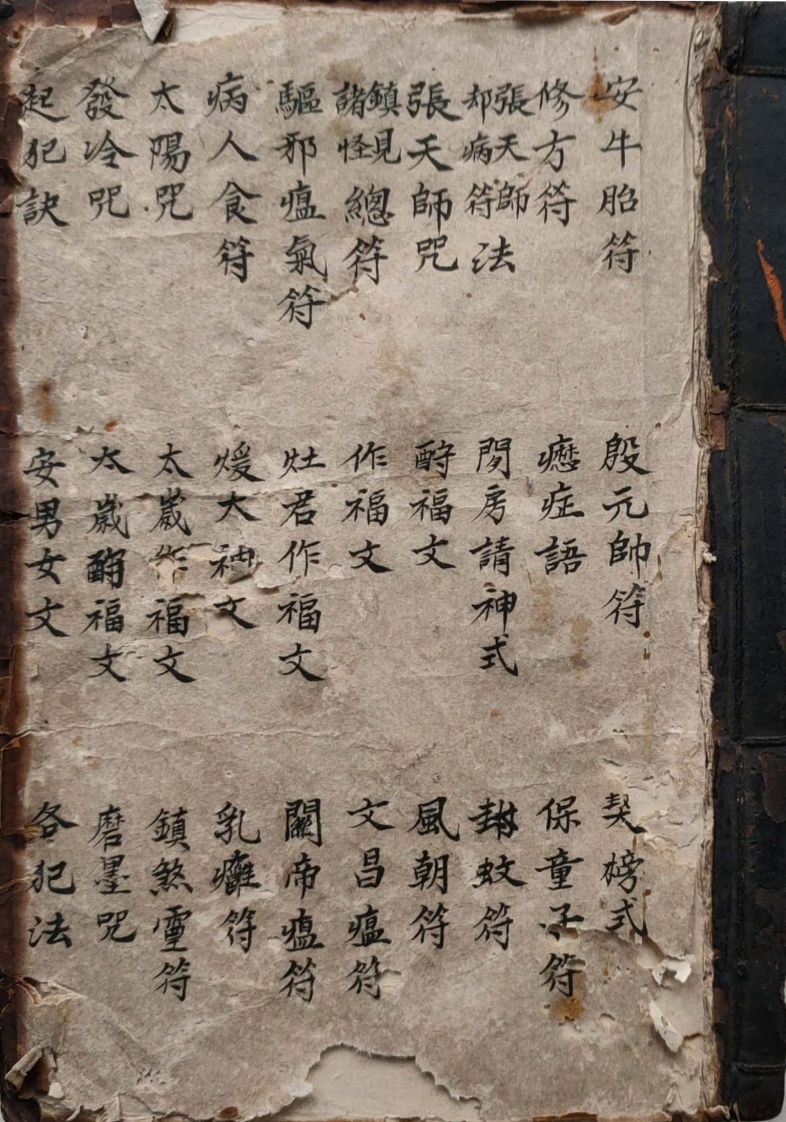 安牛胎符
修方符
張天師却病符法
張天師咒
鎮見諸怪總符
驅邪瘟氣符
病人食符
太陽咒
發冷咒
起犯訣
殷元帥符
癦症語
閉房請神式
酧福文
作福文
灶君作福文
煖大神文
太嵗作福文
太嵗酧福文
安男女文
契榜式
保童子符
封蚊符
風朝符
文昌瘟符
關帝瘟符
乳癰符
鎮煞霊符
磨墨咒
各犯法